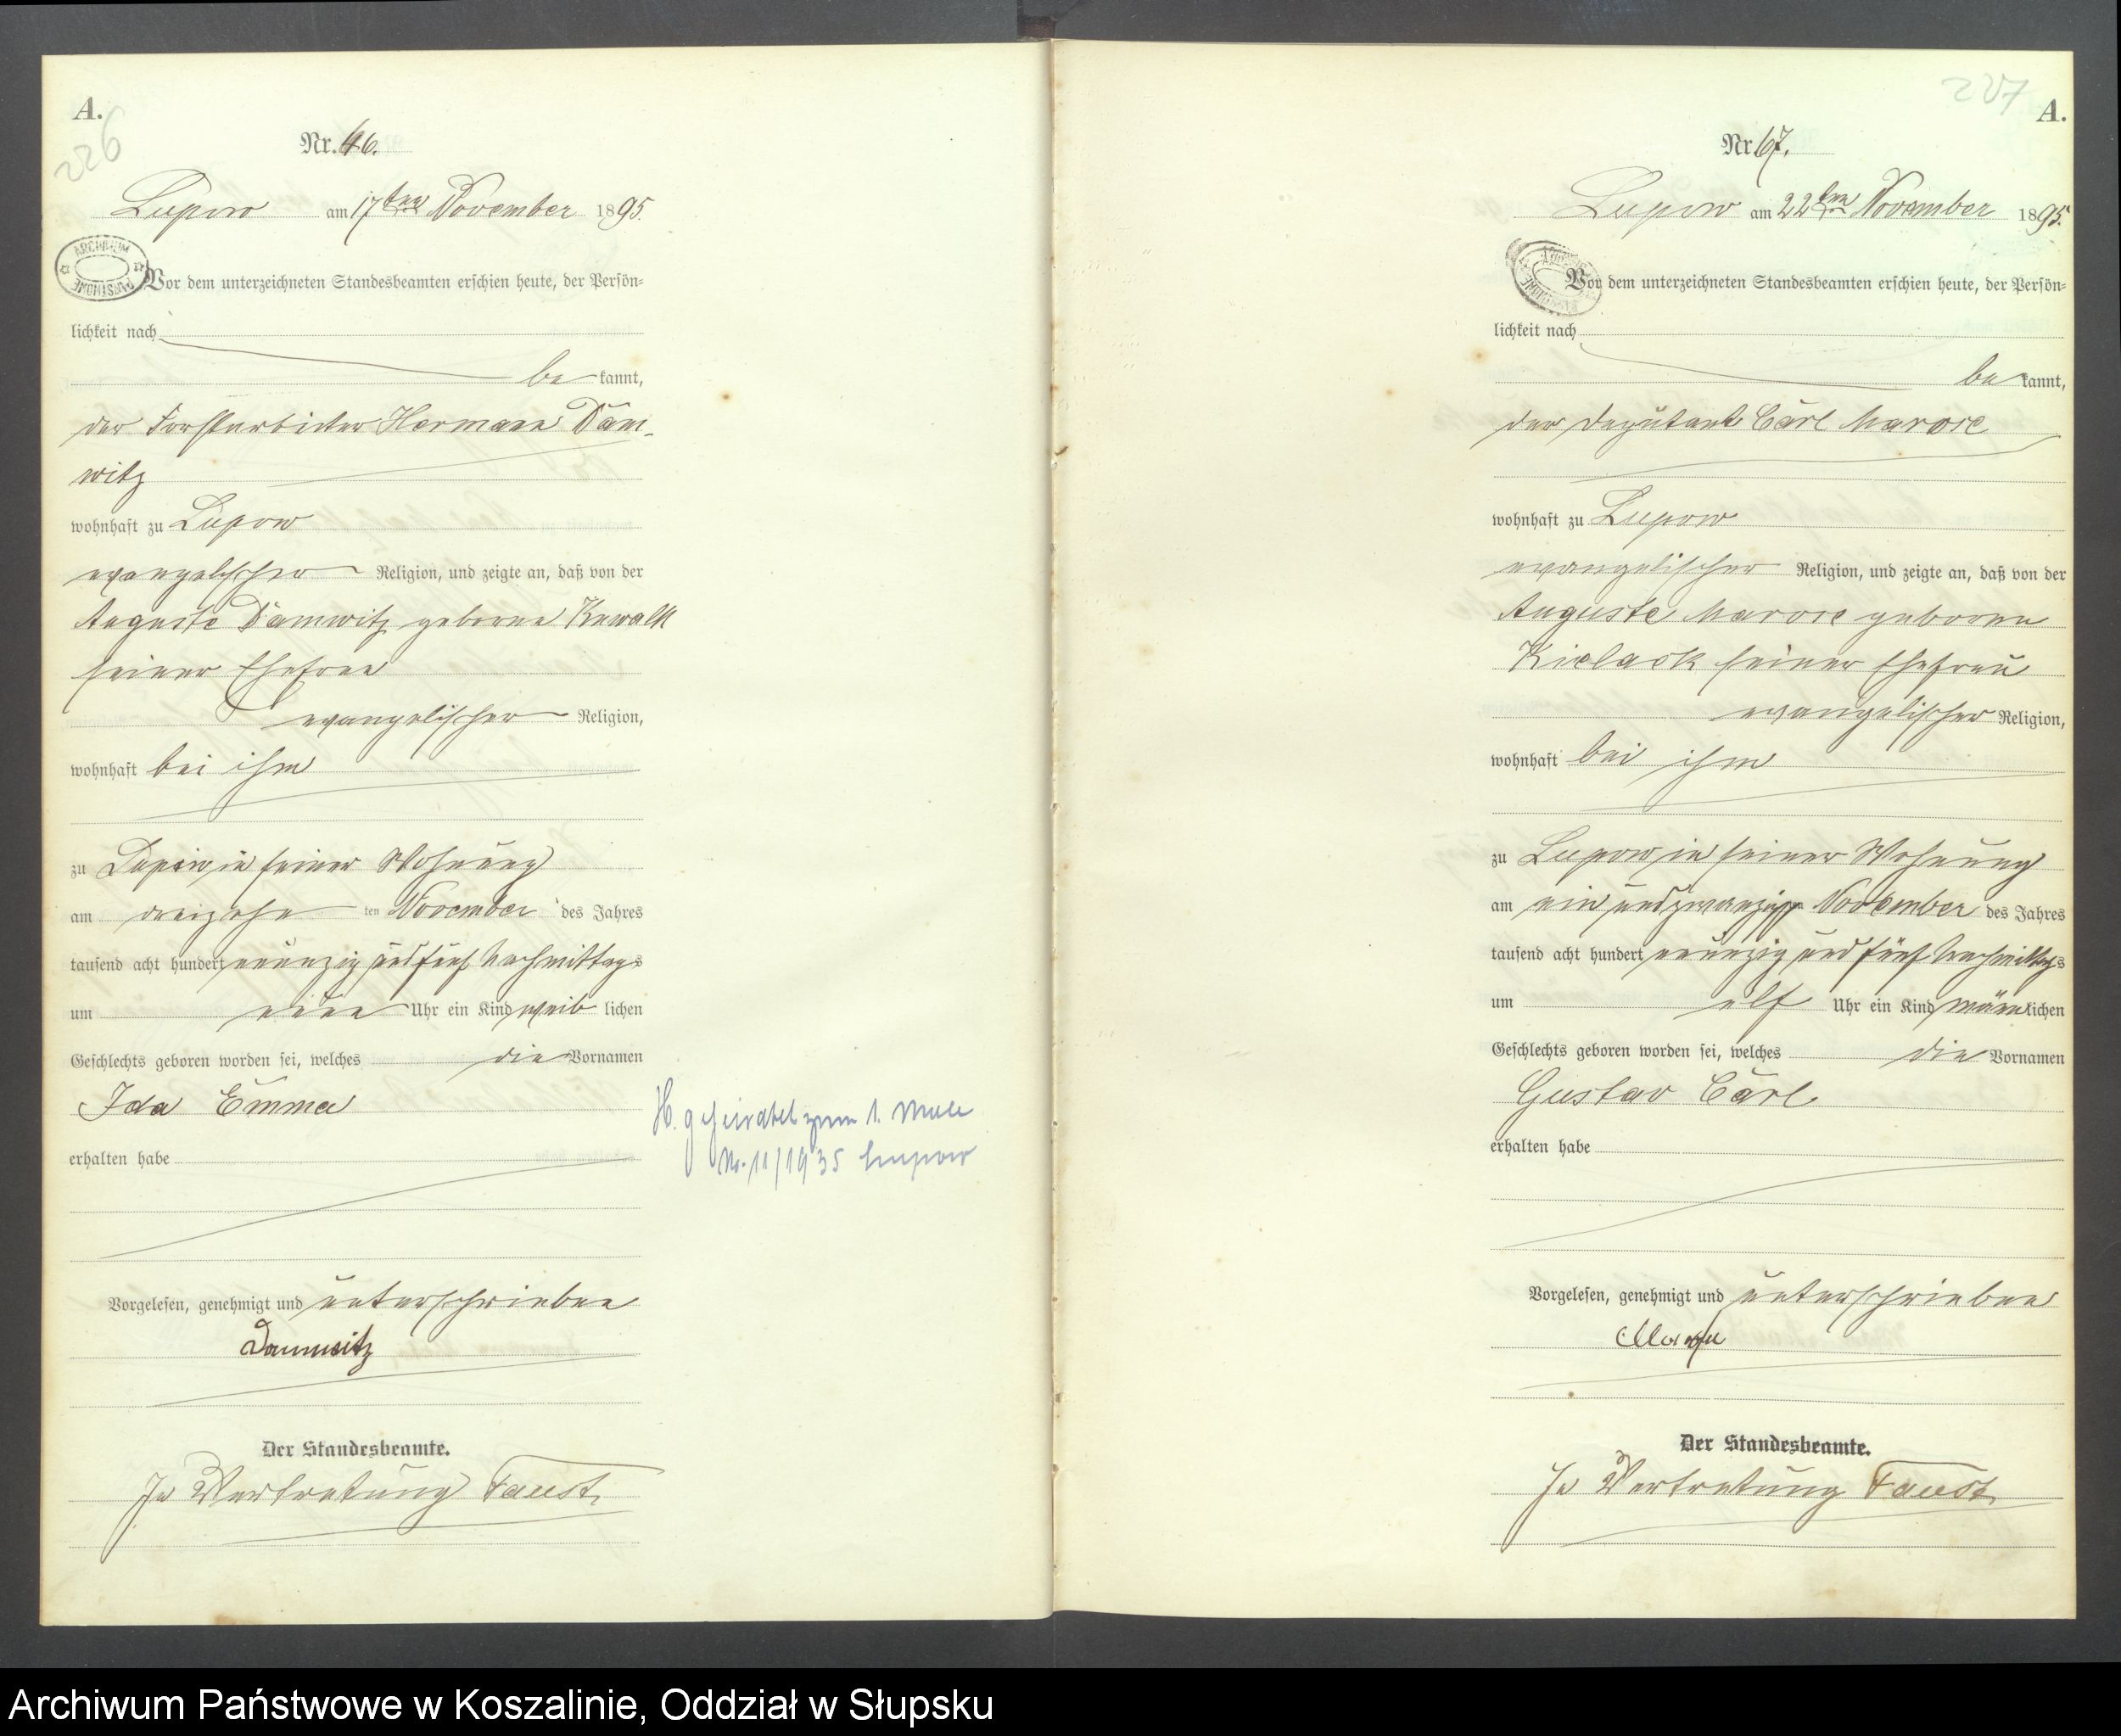 A.
226
Nr. 66.
Lupow am 17ten November 1895.
ARCHIWUM PAŃSTWOWE
Vor dem unterzeichneten Standesbeamten erschien heute, der Persön=
lichkeit nach
be kannt,
der Forstarbeiter Hermann Dam-
witz
wohnhaft zu Lupow
evangelischer Religion, und zeigte an, daß von der
Auguste Damwitz geborne
seiner Ehefrau
evangelischer Religion,
wohnhaft bei ihm
zu Lupow, in seiner Wohnung
am dreizehn ten November des Jahres
tausend acht hundert neunzig und fünf Nachmittags
um Uhr ein Kind weib lichen
Geschlechts geboren worden sei, welches die Vornamen
Ida Emma
erhalten habe
H. geheiratet zum 1. Male
No. 11/1935 Lupow
Vorgelesen, genehmigt und unterschrieben
Damwitz
Der Standesbeamte.
In Vertretung Faust
227
A.
Nr 67.
Lupow am 22ten November 1895.
Vor dem unterzeichneten Standesbeamten erschien heute, der Persön=
lichkeit nach
be kannt,
der Deputant Carl Marose
wohnhaft zu Lupow
evangelischer Religion, und zeigte an, daß von der
Auguste Marose geborne
Kielack seiner Ehefrau
evangelischer Religion,
wohnhaft bei ihm
zu Lupow, in seiner Wohnung
am ein und zwanzigsten November des Jahres
tausend acht hundert neunzig und fünf Nachmittags
um elf Uhr ein Kind männlichen
Geschlechts geboren worden sei, welches die Vornamen
Gustav Carl
erhalten habe
Vorgelesen, genehmigt und unterschrieben
Der Standesbeamte.
In Vertretung Faust
Archiwum Państwowe w Koszalinie, Oddział w Słupsku